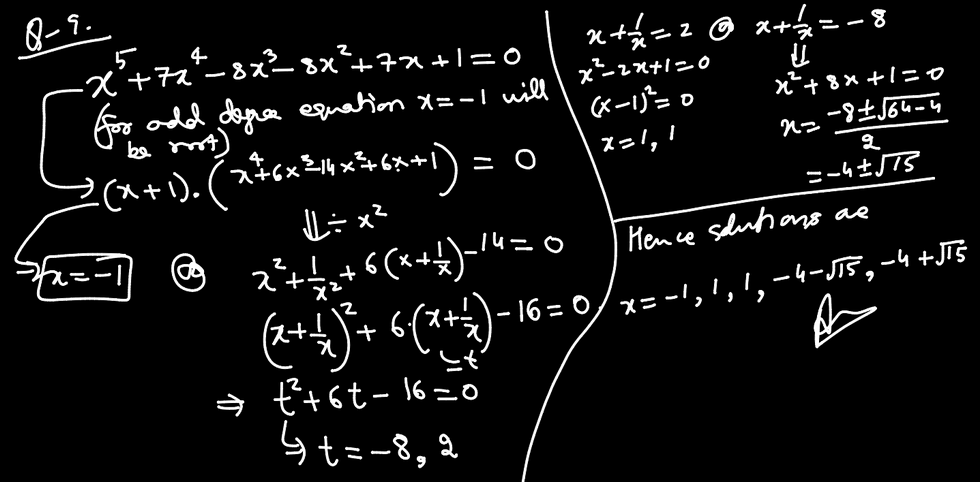 Q-9.
x⁵+7x⁴-8x³-8x²+7x+1=0
(for odd degree equation x=-1 will
be root)
(x+1).(x⁴+6x³-14x²+6x+1) = 0
⇓ ÷ x²
x=-1 or x²+1/x²+6(x+1/x)-14=0
(x+1/x)²+6.(x+1/x)-16=0
=t
⇒ t²+6t-16=0
↳ t=-8, 2
x+1/x=2 or x+1/x=-8
⇓
x²-2x+1=0
x²+8x+1=0
(x-1)²=0
x=(-8±√64-4)/2
x=1, 1
=-4±√15
Hence solutions are
x=-1, 1, 1, -4-√15, -4+√15